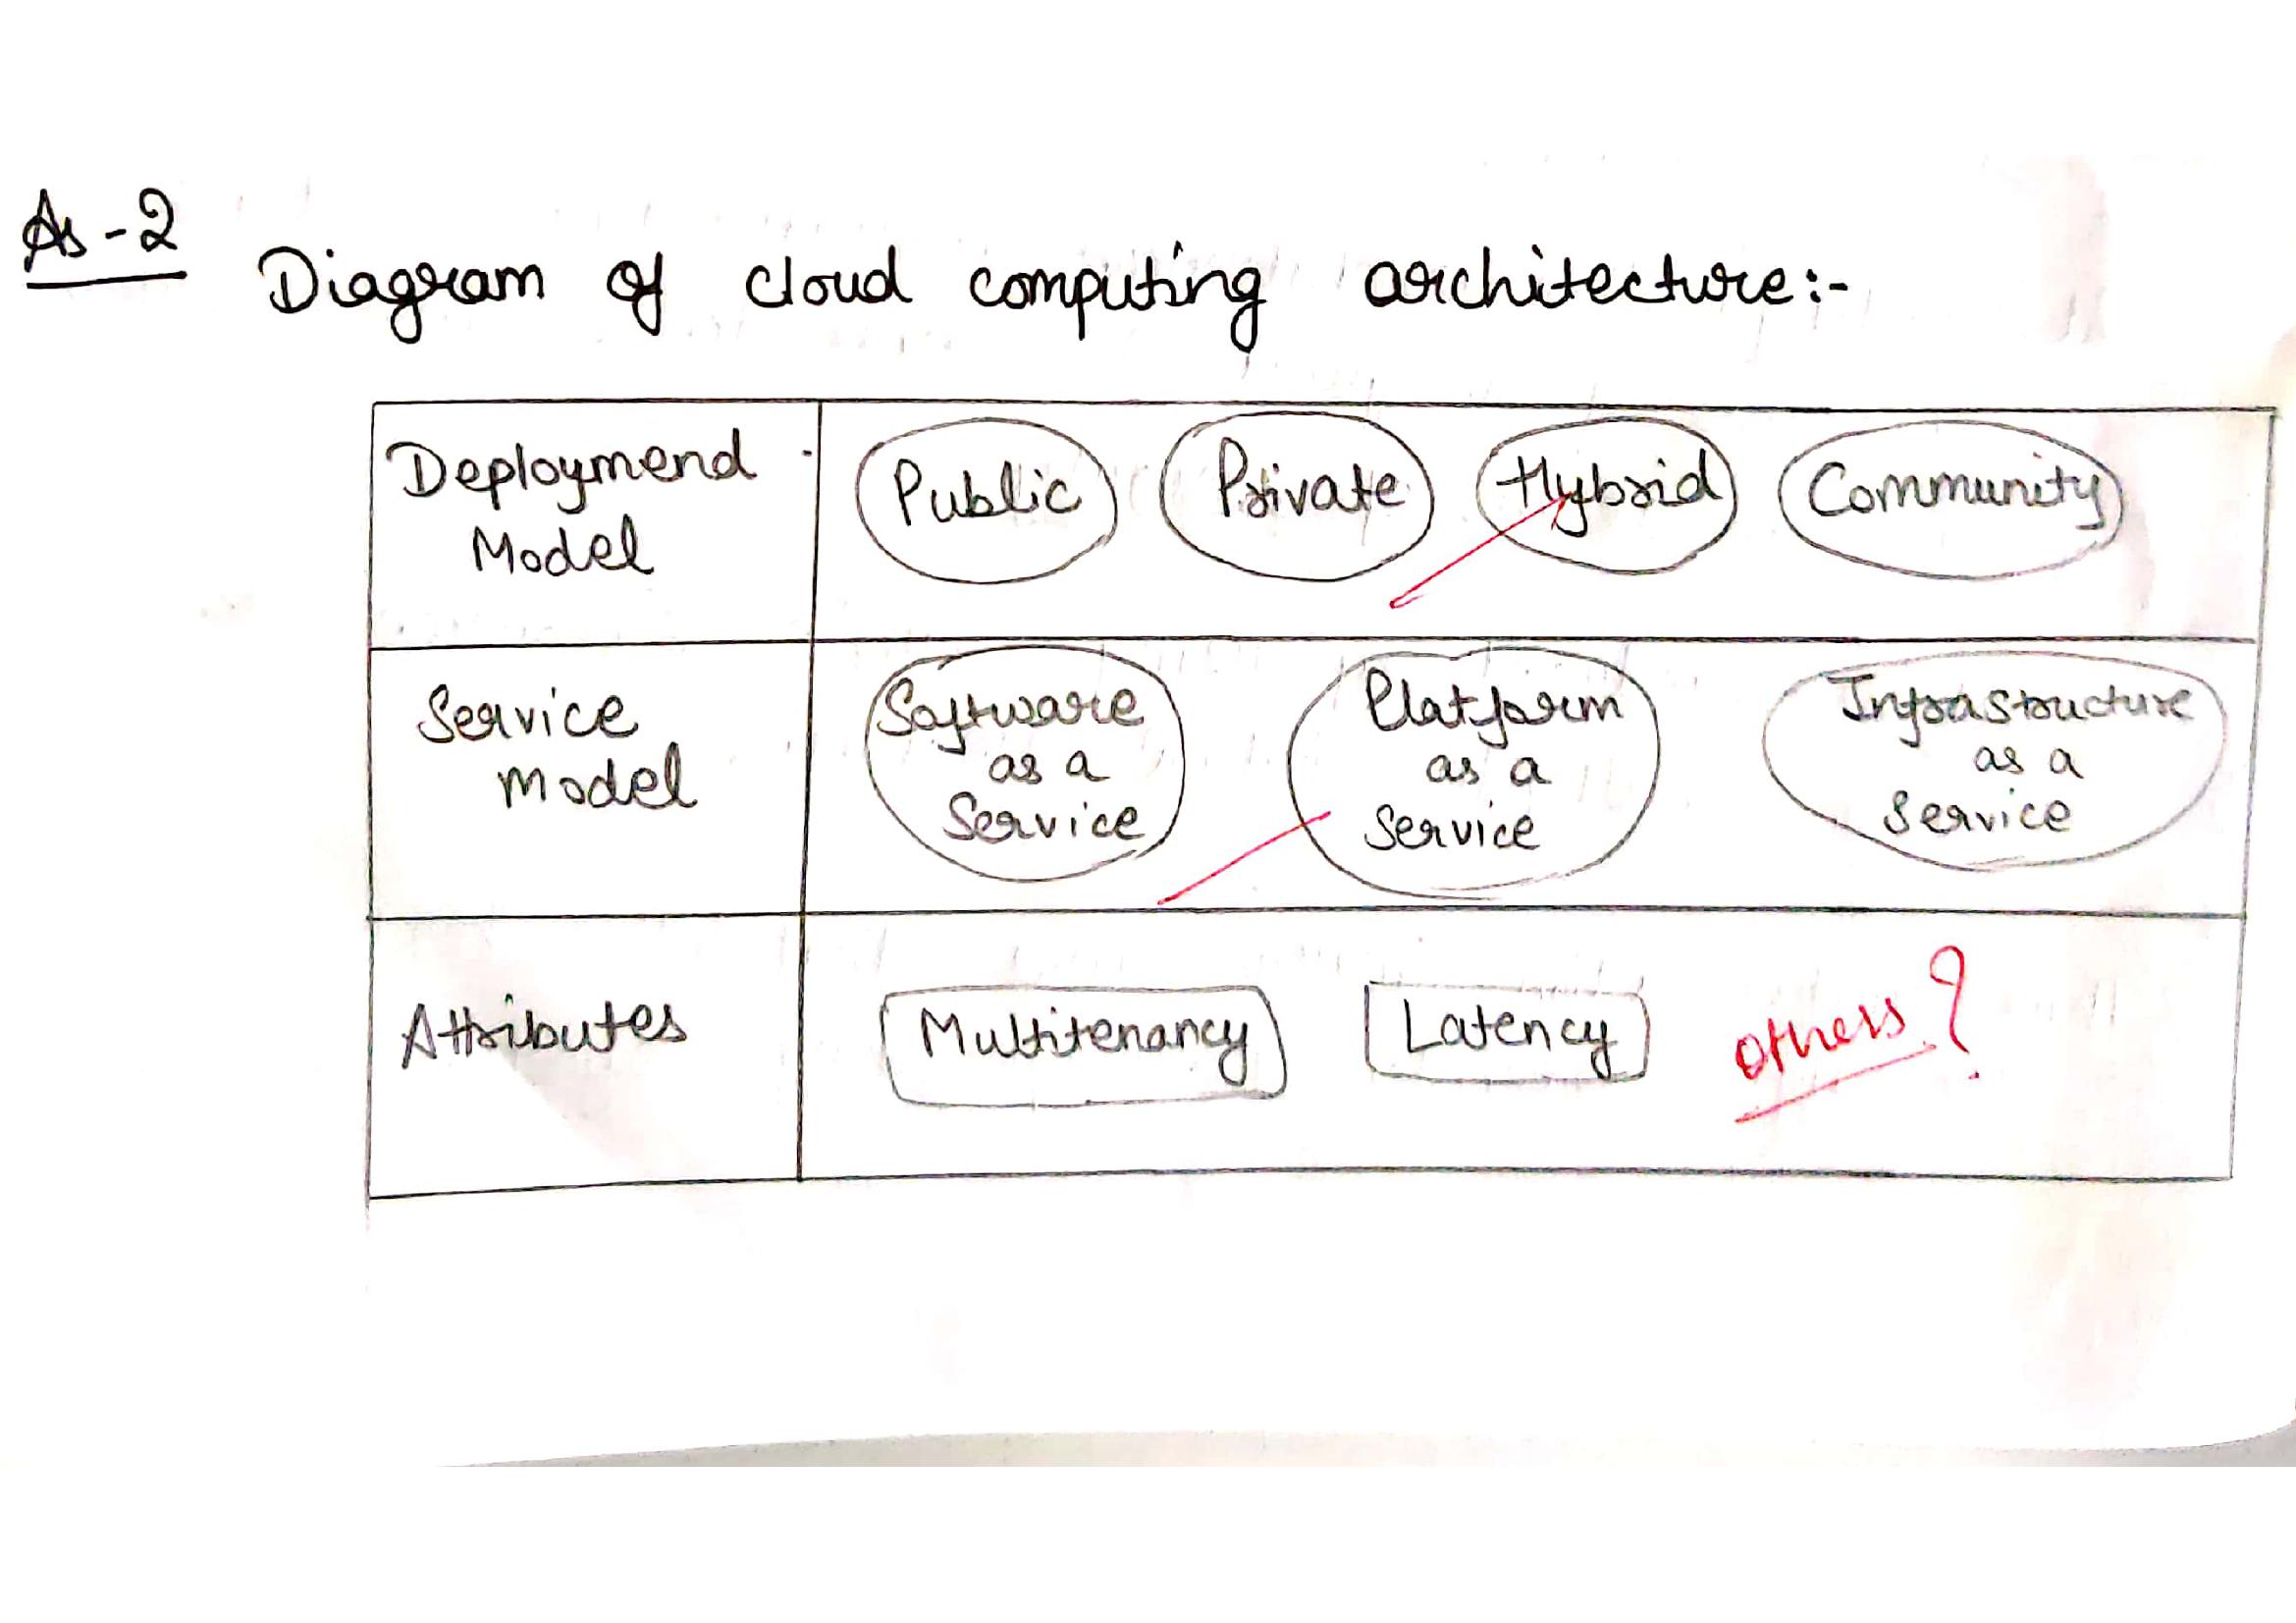 As-2
Diagram of cloud computing architecture:-
Deploymend
Model
Public
Private
Hybrid
Community
Service
Model
Software
as a
Service
Platform
as a
Service
Infrastructure
as a
Service
Attributes
Multitenancy
Latency
others?